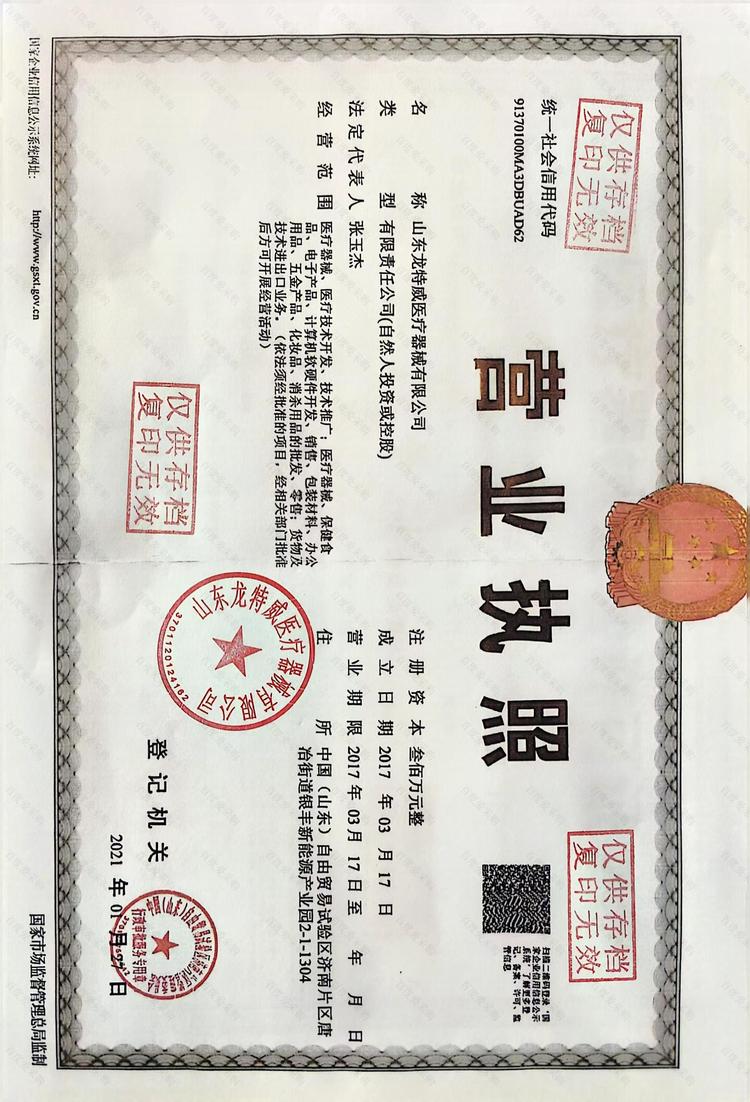 营业执照
仅供存档
复印无效
统一社会信用代码
91370100MA3DBUAD62
扫描二维码登录'国
家企业信用信息公示
系统',了解更多登
记、备案、许可、监
管信息
仅供存档
复印无效
名 称 山东龙特威医疗器械有限公司
类 型 有限责任公司(自然人投资或控股)
法定代表人 张玉杰
经营范围 医疗器械、医疗技术开发、技术推广;医疗器械、保健食
品、电子产品、计算机软硬件开发、销售、包装材料、办公
用品、五金产品、化妆品、消杀用品的批发、零售;货物及
技术进出口业务。(依法须经批准的项目,经相关部门批准
后方可开展经营活动)
注册资本 叁佰万元整
成立日期 2017 年 03 月 17 日
营业期限 2017 年 03 月 17 日至 年 月 日
住 所 中国(山东)自由贸易试验区济南片区唐
冶街道银丰新能源产业园2-1-1304
仅供存档
复印无效
山东龙特威医疗器械有限公司
3701120124162
登记机关
行政审批服务专用章
2021 年 01 月 27 日
国家企业信用信息公示系统网址: http://www.gsxt.gov.cn
国家市场监督管理总局监制